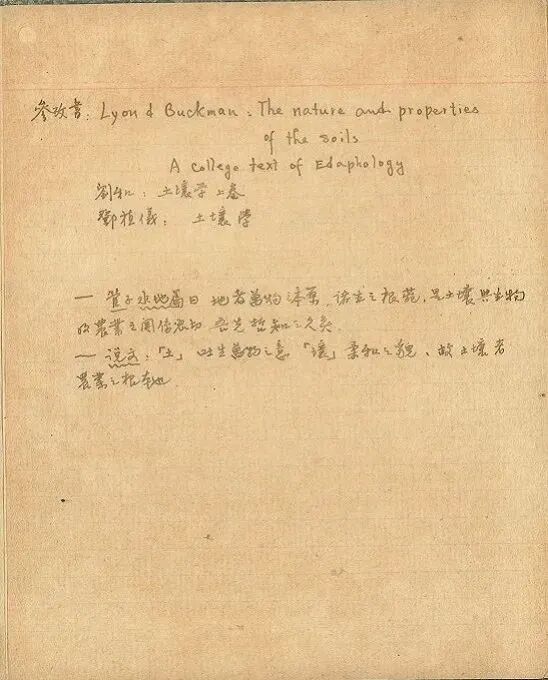 參攷書: Lyon & Buckman: The nature and properties
of the soils
A college text of Edaphology
劉和: 土壤学上卷
鄧植儀: 土壤學
— 管子水地篇曰 地者萬物之本原, 諸生之根菀, 是土壤與生物
及農業之関係密切, 吾先哲知之久矣.
— 说文:「土」吐生萬物之意「壤」柔和之貌、故土壤者
農業之根本也